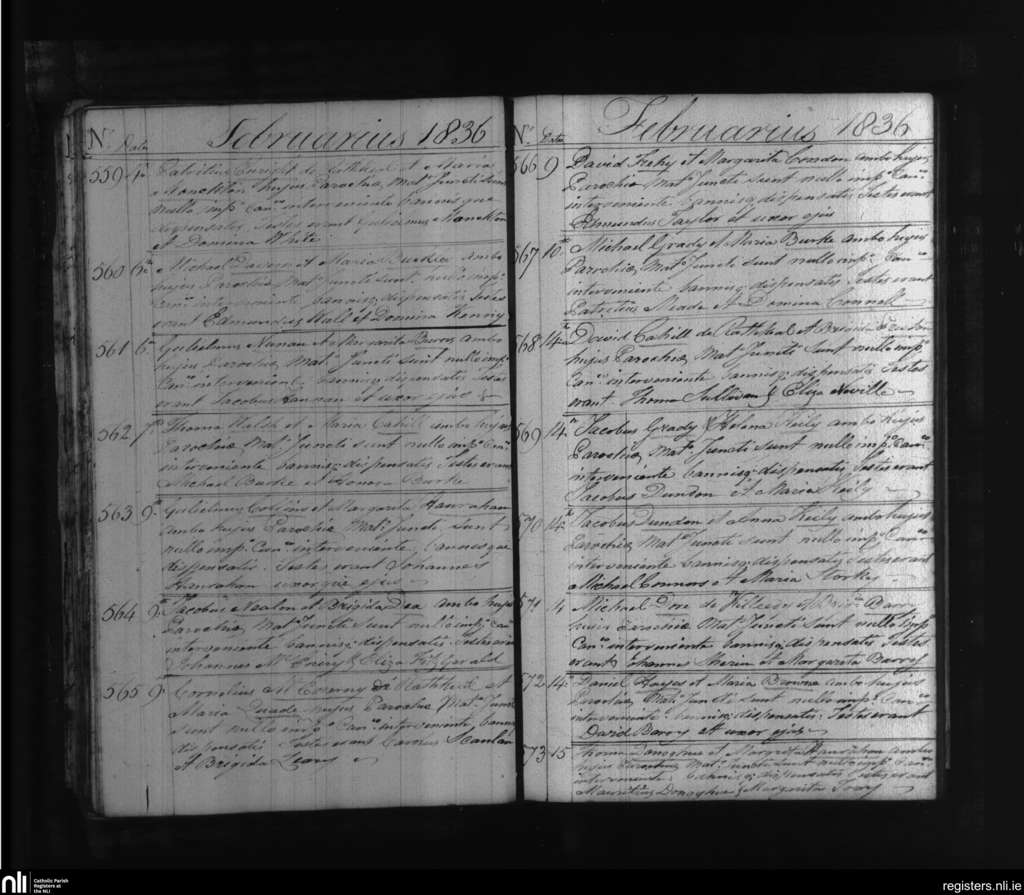 No. Date Februarius 1836
559 1a Patritius Enright de Rathkeal et Maria
Monckton hujus Parochiæ, Mato. Juncti sunt
nullo impo. Cano. interveniente bannisque
dispensatis. Testes erant Gulielmus Monckton
et Domina White
560 6a Michael Davern et Maria Burke ambo
hujus Parochiæ Mato. Juncti sunt nullo impo.
Cano. interveniente bannisq; dispensatis Testes
erant Edmundus Wall et Domina Henry
561 6a Gulielmus Nunan et Margarita Burns ambo
hujus Parochiæ Mato. Juncti sunt nullo impo.
Cano. intervenient, bannisq; dispensatis Testes
erant Jacobus Lannan et uxor ejus
562 7a Thoma Walsh et Maria Cahill ambo hujus
Parochiæ Mato. Juncti sunt nullo impo. Cano.
interveniente bannisq; dispensatis Testes erant
Michael Burke et Honora Burke
563 9a Gulielmus Collins et Margarita Hanrahan
ambo hujus Parochiæ Mato. Juncti sunt
nullo impo. Cano. interveniente, bannisque
dispensatis. Testes erant Johannes
Hanrahan uxorque ejus
564 9a Jacobus Nealon et Brigida Dea ambo hujus
Parochiæ Mato. Juncti sunt nullo impo. Cano.
interveniente bannisq; dispensatis Testes erant
Johannes McEniry & Eliza FitzGerald
565 9a Cornelius McEnerny de Rathkeal et
Maria Quade hujus Parochiæ Mato. Juncti
sunt nullo impo. Cano. interveniente, bannisq;
dispensatis Testes erant Carolus Scanlan
et Brigida Leary
No. Date Februarius 1836
566 9 David Feehy et Margarita Condon ambo hujus
Parochiæ Mato. Juncti sunt nullo impo. Cano.
interveniente bannisq; dispensatis Testes erant
Edmundus Taylor et uxor ejus
567 10a Michael Grady et Maria Burke ambo hujus
Parochiæ, Mato. Juncti sunt nullo impo. Cano.
interveniente bannisq; dispensatis Testes erant
Patritius Meade et Domina Connell
568 14a David Cahill de Rathkeal et Brigida
hujus Parochiæ, Mato. Juncti sunt nullo impo.
Cano. interveniente bannisq; dispensatis Testes
erant Thoma Sullivan & Eliza Neville
569 14a Jacobus Grady & Helena Kiely ambo hujus
Parochiæ, Mato. Juncti sunt nullo impo. Cano.
interveniente bannisq; dispensatis Testes erant
Jacobus Dundon et Maria Kiely
570 14a Jacobus Dundon et Anna Kiely ambo hujus
Parochiæ, Mato. Juncti sunt nullo impo. Cano.
interveniente bannisq; dispensatis Testes erant
Michael Connors et Maria Storkes
571 14 Michael Dore de Killeedy et Brigda.
hujus Parochiæ Mato. Juncti sunt nullo impo.
Cano. interveniente bannisq; dispensatis Testes
erant Johannes Sheran et Margarita Barret
572 14a Daniel Hayes et Maria Browne ambo hujus
Parochiæ, Mato. Juncti sunt nullo impo. Cano.
interveniente bannisq; dispensatis; Testes erant
David Barry et uxor ejus
573 15 Thoma Donoghue et Margrita Hanrahan ambo
hujus Parochiæ Mato. Juncti sunt nullo impo. Cano.
interveniente; bannisq; dispensatis Testes erant
Mauritius Donoghue & Margarita
nli Catholic Parish
Registers at
the NLI
registers.nli.ie